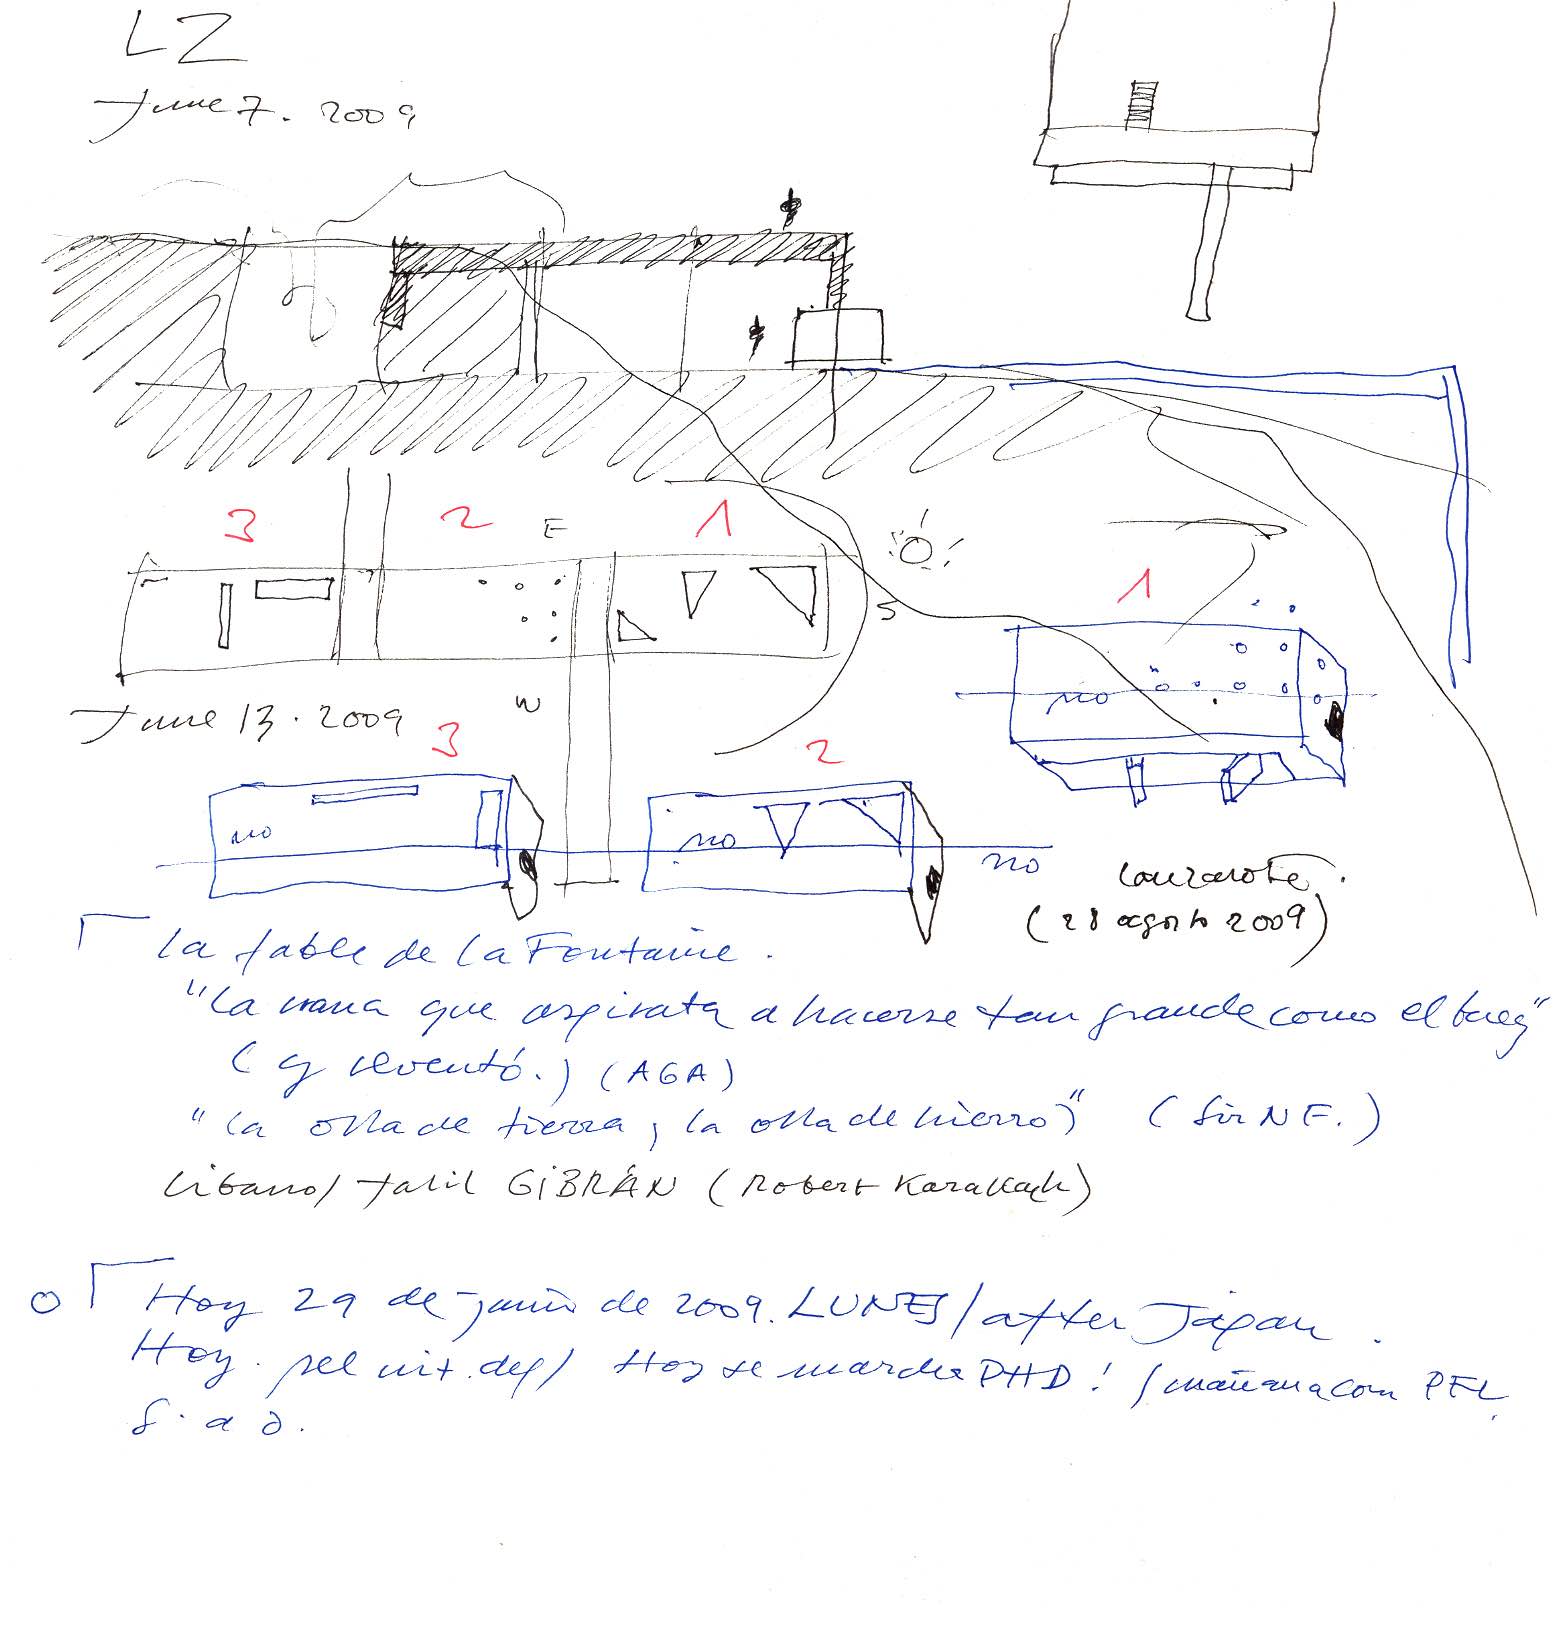 LZ
June 7. 2009
3 2 E 1
S
1
no
June 13. 2009
W
3 2
no
no
no
Lanzarote.
(28 agosto 2009)
La fable de La Fontaine.
"La rana que aspirata a hacerse tan grande como el buey"
(y reventó.) (AGA)
"La olla de tierra, la olla de hierro" (Sir N F.)
Libano/ Jalil GIBRÁN (Robert Karallach)
Hoy 29 de junio de 2009. LUNES/after Japan.
Hoy. / Hoy se marcha PHD! / mañana com PFL.